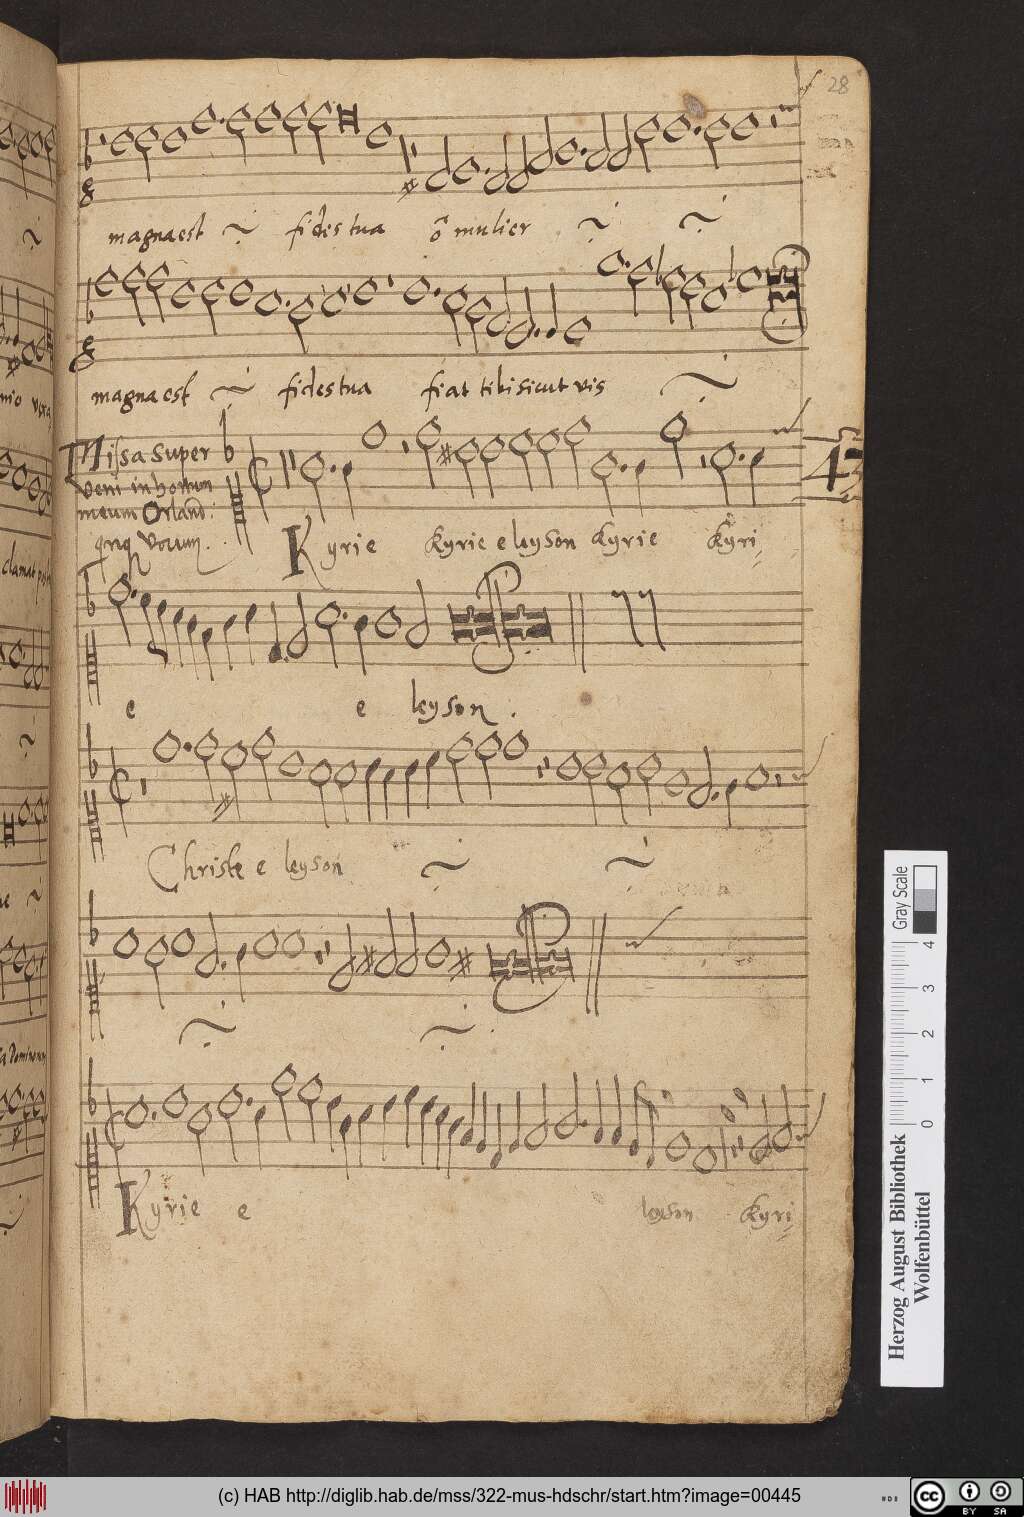 28
magna est fides tua ô mulier
magna est fides tua fiat tibi sicut vis
Missa super
veni in hortum
meum Orland:
vocum.
Kyrie Kyrie eleyson Kyrie Kyri
4
e e leyson.
Christe eleyson
Kyrie e leyson Kyri
Gray Scale
0 1 2 3 4
Herzog August Bibliothek
Wolfenbüttel
(c) HAB http://diglib.hab.de/mss/322-mus-hdschr/start.htm?image=00445
cc BY SA